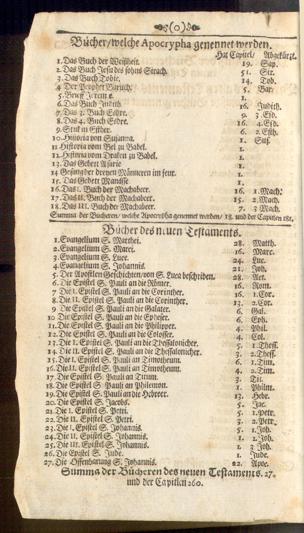 (o)
Bücher/welche Apocrypha genennet werden.
Hat Capitel/ Abgekürzt.
1. Das Buch der Weißheit. 19. Sap.
2. Das Buch Jesu des sohns Sirach. 51. Sir.
3. Das Buch Tobie. 14. Tob.
4. Der Prophet Baruch. 5. Bar.
5. 1.
6. Das Buch Judith 16. Judith.
7. Das 3. Buch Esdre. 9. 3. Esd.
8. Das 4. Buch Esdre. 16. 4. Esd.
9. in Esther. 6.
10. Historia von Susanna. 1. Suß.
11. Historia vom Bel zu Babel. 1.
12. Historia vom Draken zu Babel. 1.
13. Das Gebett Asarie 1.
14 Gesang der dreyen Männeren im feur. 1.
15. Das Gebett Manasse 1.
16. Das I. Buch der Machabeer. 16. 1. Mach.
17. Das II. Buch der Machabeer. 15. 2. Mach.
18. Das III. Buch der Machabeer. 7. 3. Mach.
Summa der Bücheren/ welche Apocrypha genennet werden/ 18. und der Capitlen 181.
Bücher des neuen Testaments.
1. Evangelium S. Matthei. 28. Matth.
2. Evangelium S. Marci. 16. Marc.
3. Evangelium S. Luce. 24. Luc.
4. Evangelium S. Johannis. 21. Joh.
5. Der Apostlen Geschichten/von S. Luca beschriben. 28. Act.
6. Die Epistel S. Pauli an die Römer. 16. Rom.
7. Die I. Epistel S. Pauli an die Corinther. 16. 1. Cor.
8. Die II. Epistel S. Pauli an die Corinther. 13. 2. Cor.
9. Die Epistel S. Pauli an die Galater. 6. Gal.
10. Die Epistel S. Pauli an die Epheser. 6. Eph.
11. Die Epistel S. Pauli an die Philipper. 4. Phil.
12. Die Epistel S. Pauli an die Colosser. 4. Col.
13. Die I. Epistel S. Pauli an die Thessalonicher. 5. 1. Thess.
14. Die II. Epistel S. Pauli an die Thessalonicher. 3. 2. Thess.
15. Die I. Epistel S. Pauli an Timotheum. 6. 1. Tim.
16. Die II. Epistel S. Pauli an Timotheum. 4. 2. Tim.
17. Die Epistel S. Pauli an Titum. 3. Tit.
18. Die Epistel S. Pauli an Philemon. 1. Philm.
19. Die Epistel S. Pauli an die Hebreer. 13. Hebr.
20. Die Epistel S. Jacobs. 5. Jac.
21. Die I. Epistel S. Petri. 5. 1. Petr.
22. Die II. Epistel S. Petri. 3. 2. Petr.
23. Die I. Epistel S. Johannis. 5. 1. Joh.
24. Die II. Epistel S. Johannis. 1. 2. Joh.
25. Die III. Epistel S. Johannis. 1. 3. Joh.
26. Die Epistel S. Jude. 1. Jud.
27. Die Offenbarung S. Johannis. 22. Apoc.
Summa der Bücheren des neuen Testaments. 27.
und der Capitlen 260.